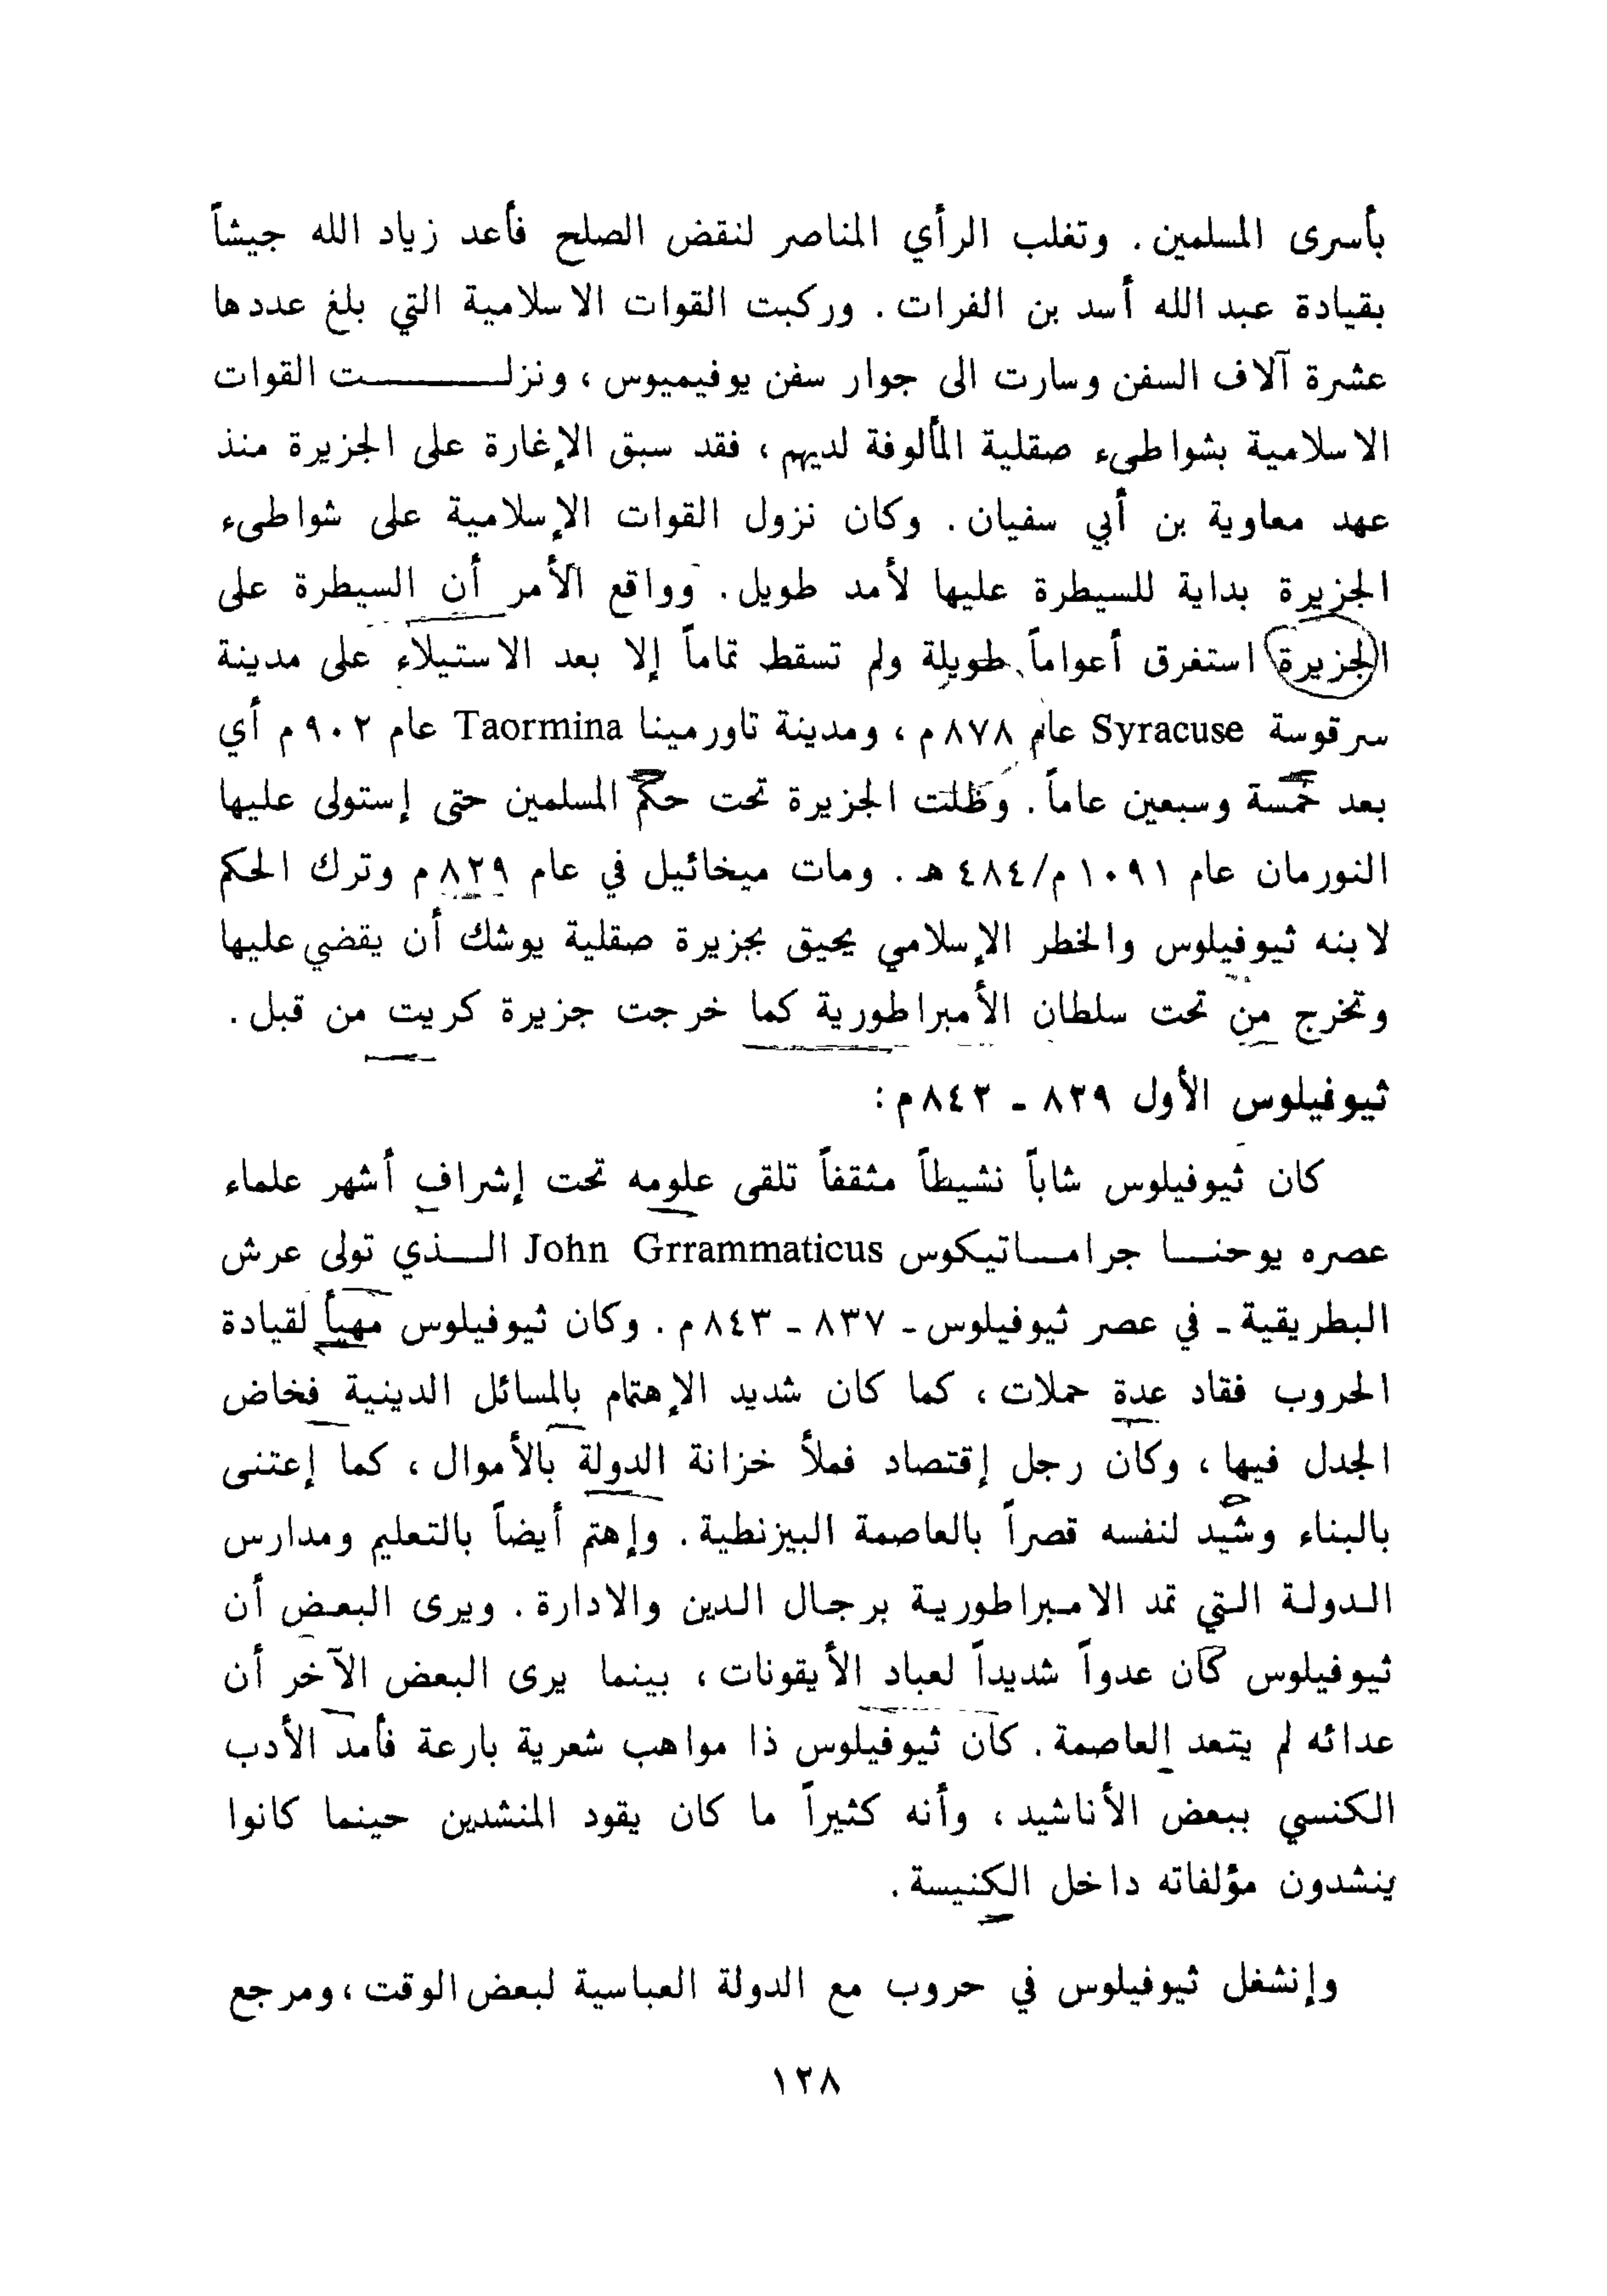 بأسرى المسلمين. وتغلب الرأي المناصر لنقض الصلح فأعد زياد الله جيشاً
بقيادة عبد الله أسد بن الفرات. وركبت القوات الاسلامية التي بلغ عددها
عشرة آلاف السفن وسارت الى جوار سفن يوفيميوس، ونزلـــــت القوات
الاسلامية بشواطىء صقلية المألوفة لديهم، فقد سبق الإغارة على الجزيرة منذ
عهد معاوية بن أبي سفيان. وكان نزول القوات الإسلامية على شواطىء
الجزيرة بداية للسيطرة عليها لأمد طويل. وواقع الأمر أن السيطرة على
الجزيرة استغرق أعواماً طويلة ولم تسقط تماماً إلا بعد الاستيلاء على مدينة
سرقوسة Syracuse عام ٨٧٨ م، ومدينة تاورمينا Taormina عام ٩٠٢ م أي
بعد خمسة وسبعين عاماً. وظلت الجزيرة تحت حكم المسلمين حتى إستولى عليها
النورمان عام ١٠٩١ م/٤٨٤ هـ. ومات ميخائيل في عام ٨٢٩ م وترك الحكم
لابنه ثيوفيلوس والخطر الإسلامي يحيق بجزيرة صقلية يوشك أن يقضي عليها
وتخرج من تحت سلطان الأمبراطورية كما خرجت جزيرة كريت من قبل.
ثيوفيلوس الأول ٨٢٩ ـ ٨٤٢ م:
كان ثيوفيلوس شاباً نشيطاً مثقفاً تلقى علومه تحت إشراف أشهر علماء
عصره يوحنـــا جرامـــاتيكوس John Grrammaticus الـــذي تولى عرش
البطريقية ـ في عصر ثيوفيلوس ـ ٨٣٧ ـ ٨٤٣ م. وكان ثيوفيلوس مهيأ لقيادة
الحروب فقاد عدة حملات، كما كان شديد الإهتمام بالمسائل الدينية فخاض
الجدل فيها، وكان رجل إقتصاد فملأ خزانة الدولة بالأموال، كما إعتنى
بالبناء وشيد لنفسه قصراً بالعاصمة البيزنطية. وإهتم أيضاً بالتعليم ومدارس
الدولة التي تمد الامبراطورية برجال الدين والادارة. ويرى البعض أن
ثيوفيلوس كان عدواً شديداً لعباد الأيقونات، بينما يرى البعض الآخر أن
عدائه لم يتعد العاصمة. كان ثيوفيلوس ذا مواهب شعرية بارعة فأمد الأدب
الكنسي ببعض الأناشيد، وأنه كثيراً ما كان يقود المنشدين حينما كانوا
ينشدون مؤلفاته داخل الكنيسة.
وإنشغل ثيوفيلوس في حروب مع الدولة العباسية لبعض الوقت، ومرجع
١٢٨